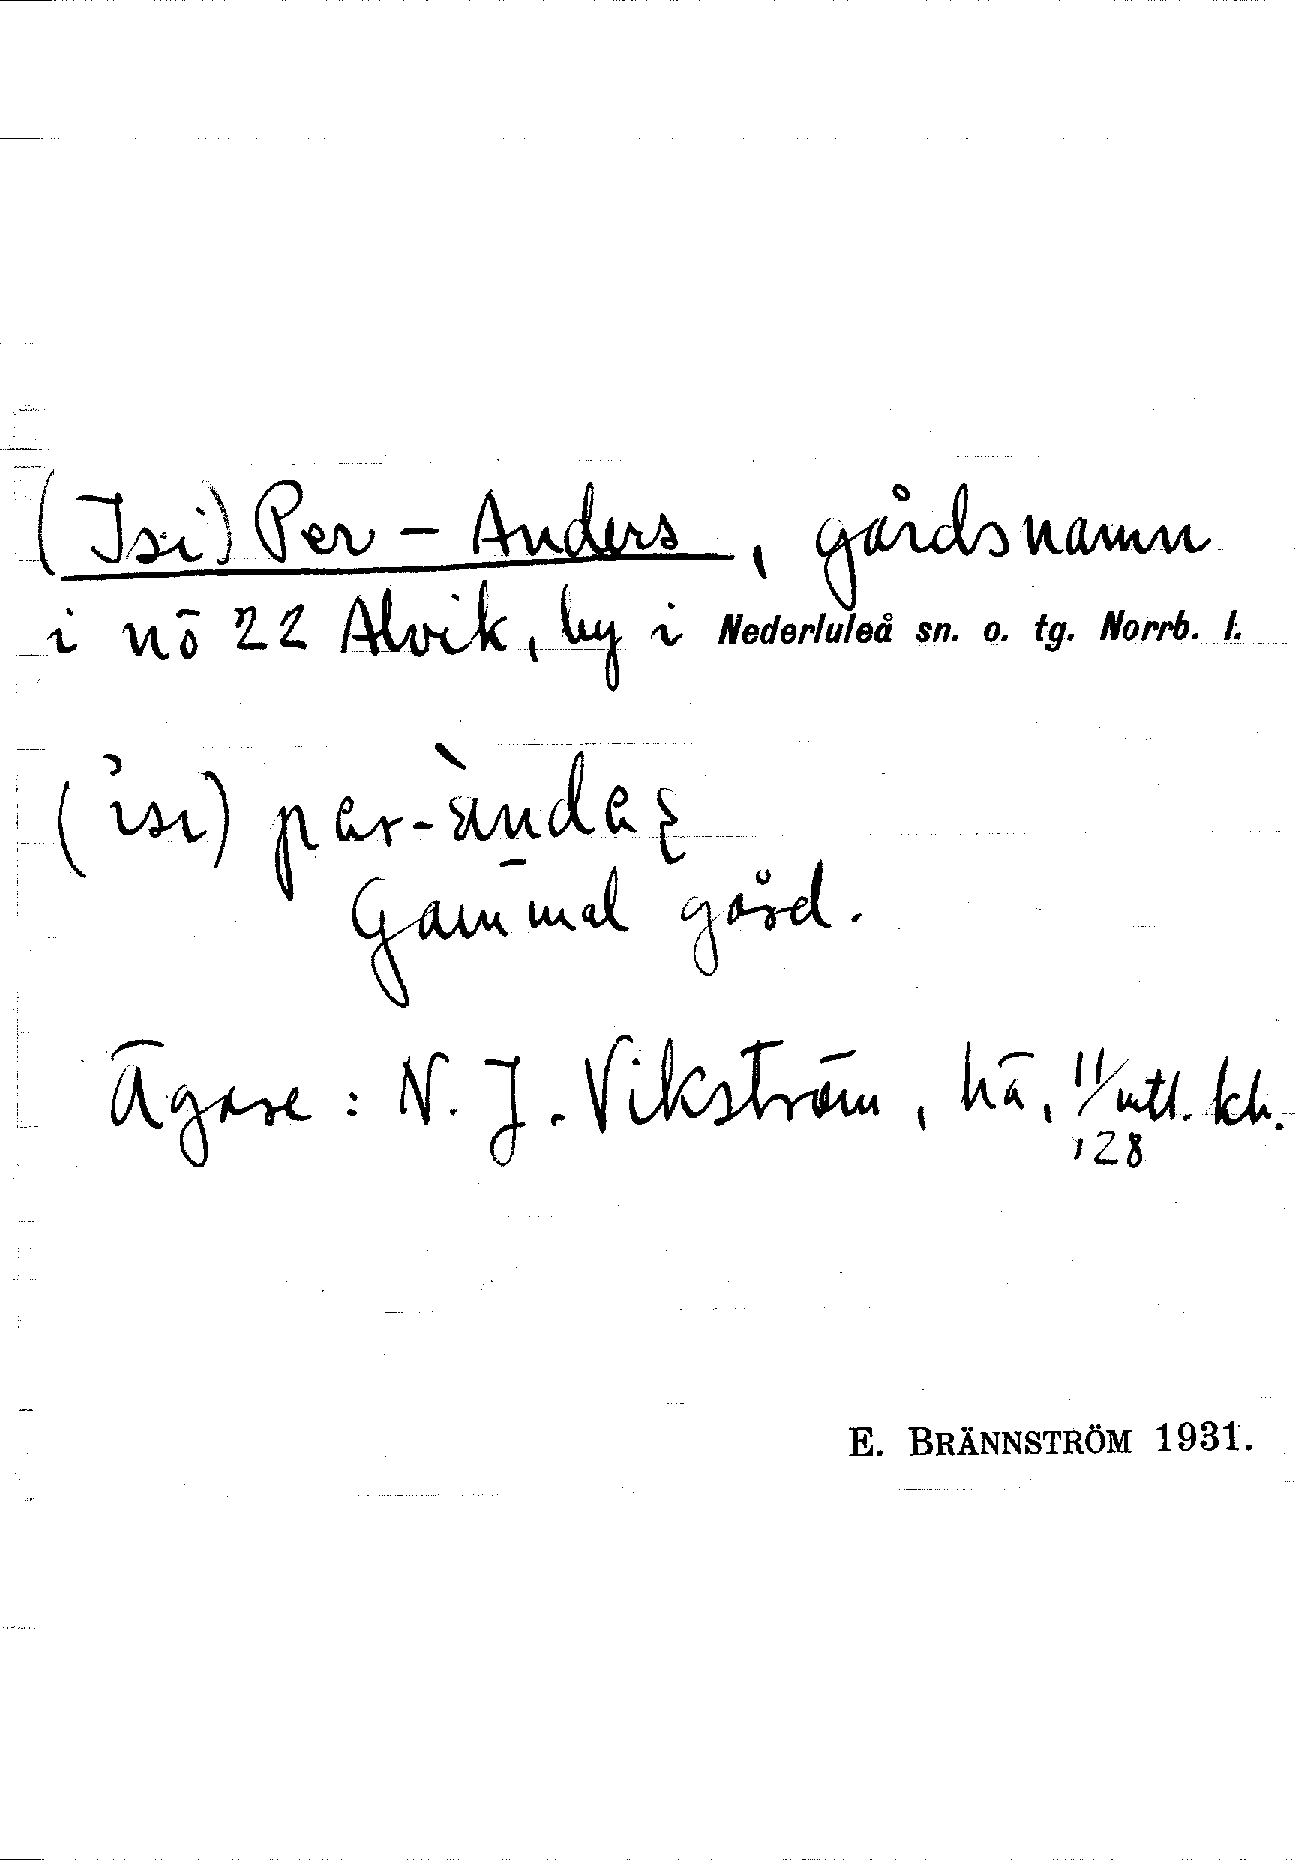 (Isi) Per - Anders, gårdsnamn
i nö 22 Alvik, by i Nederluleå sn. o. tg. Norrb. l.
(isi) per-
Gammal gård.
Ägare: N. J. Vikström, hä, 11/128 mtl. kh.
E. BRÄNNSTRÖM 1931.